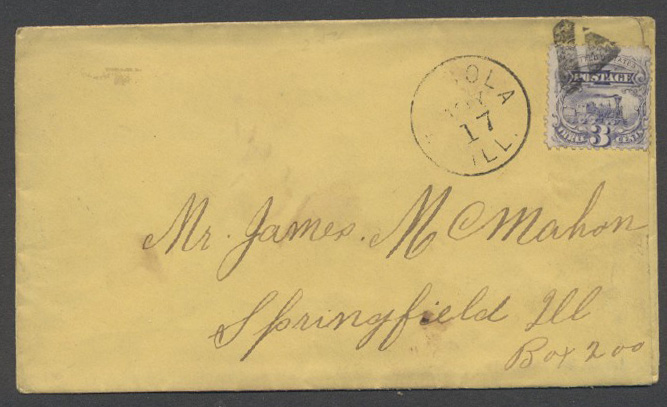 OLA
17
ILL.
UNITED STATES
POSTAGE
THREE 3 CENTS
Mr. James. McMahon
Springfield Ill
Box 200